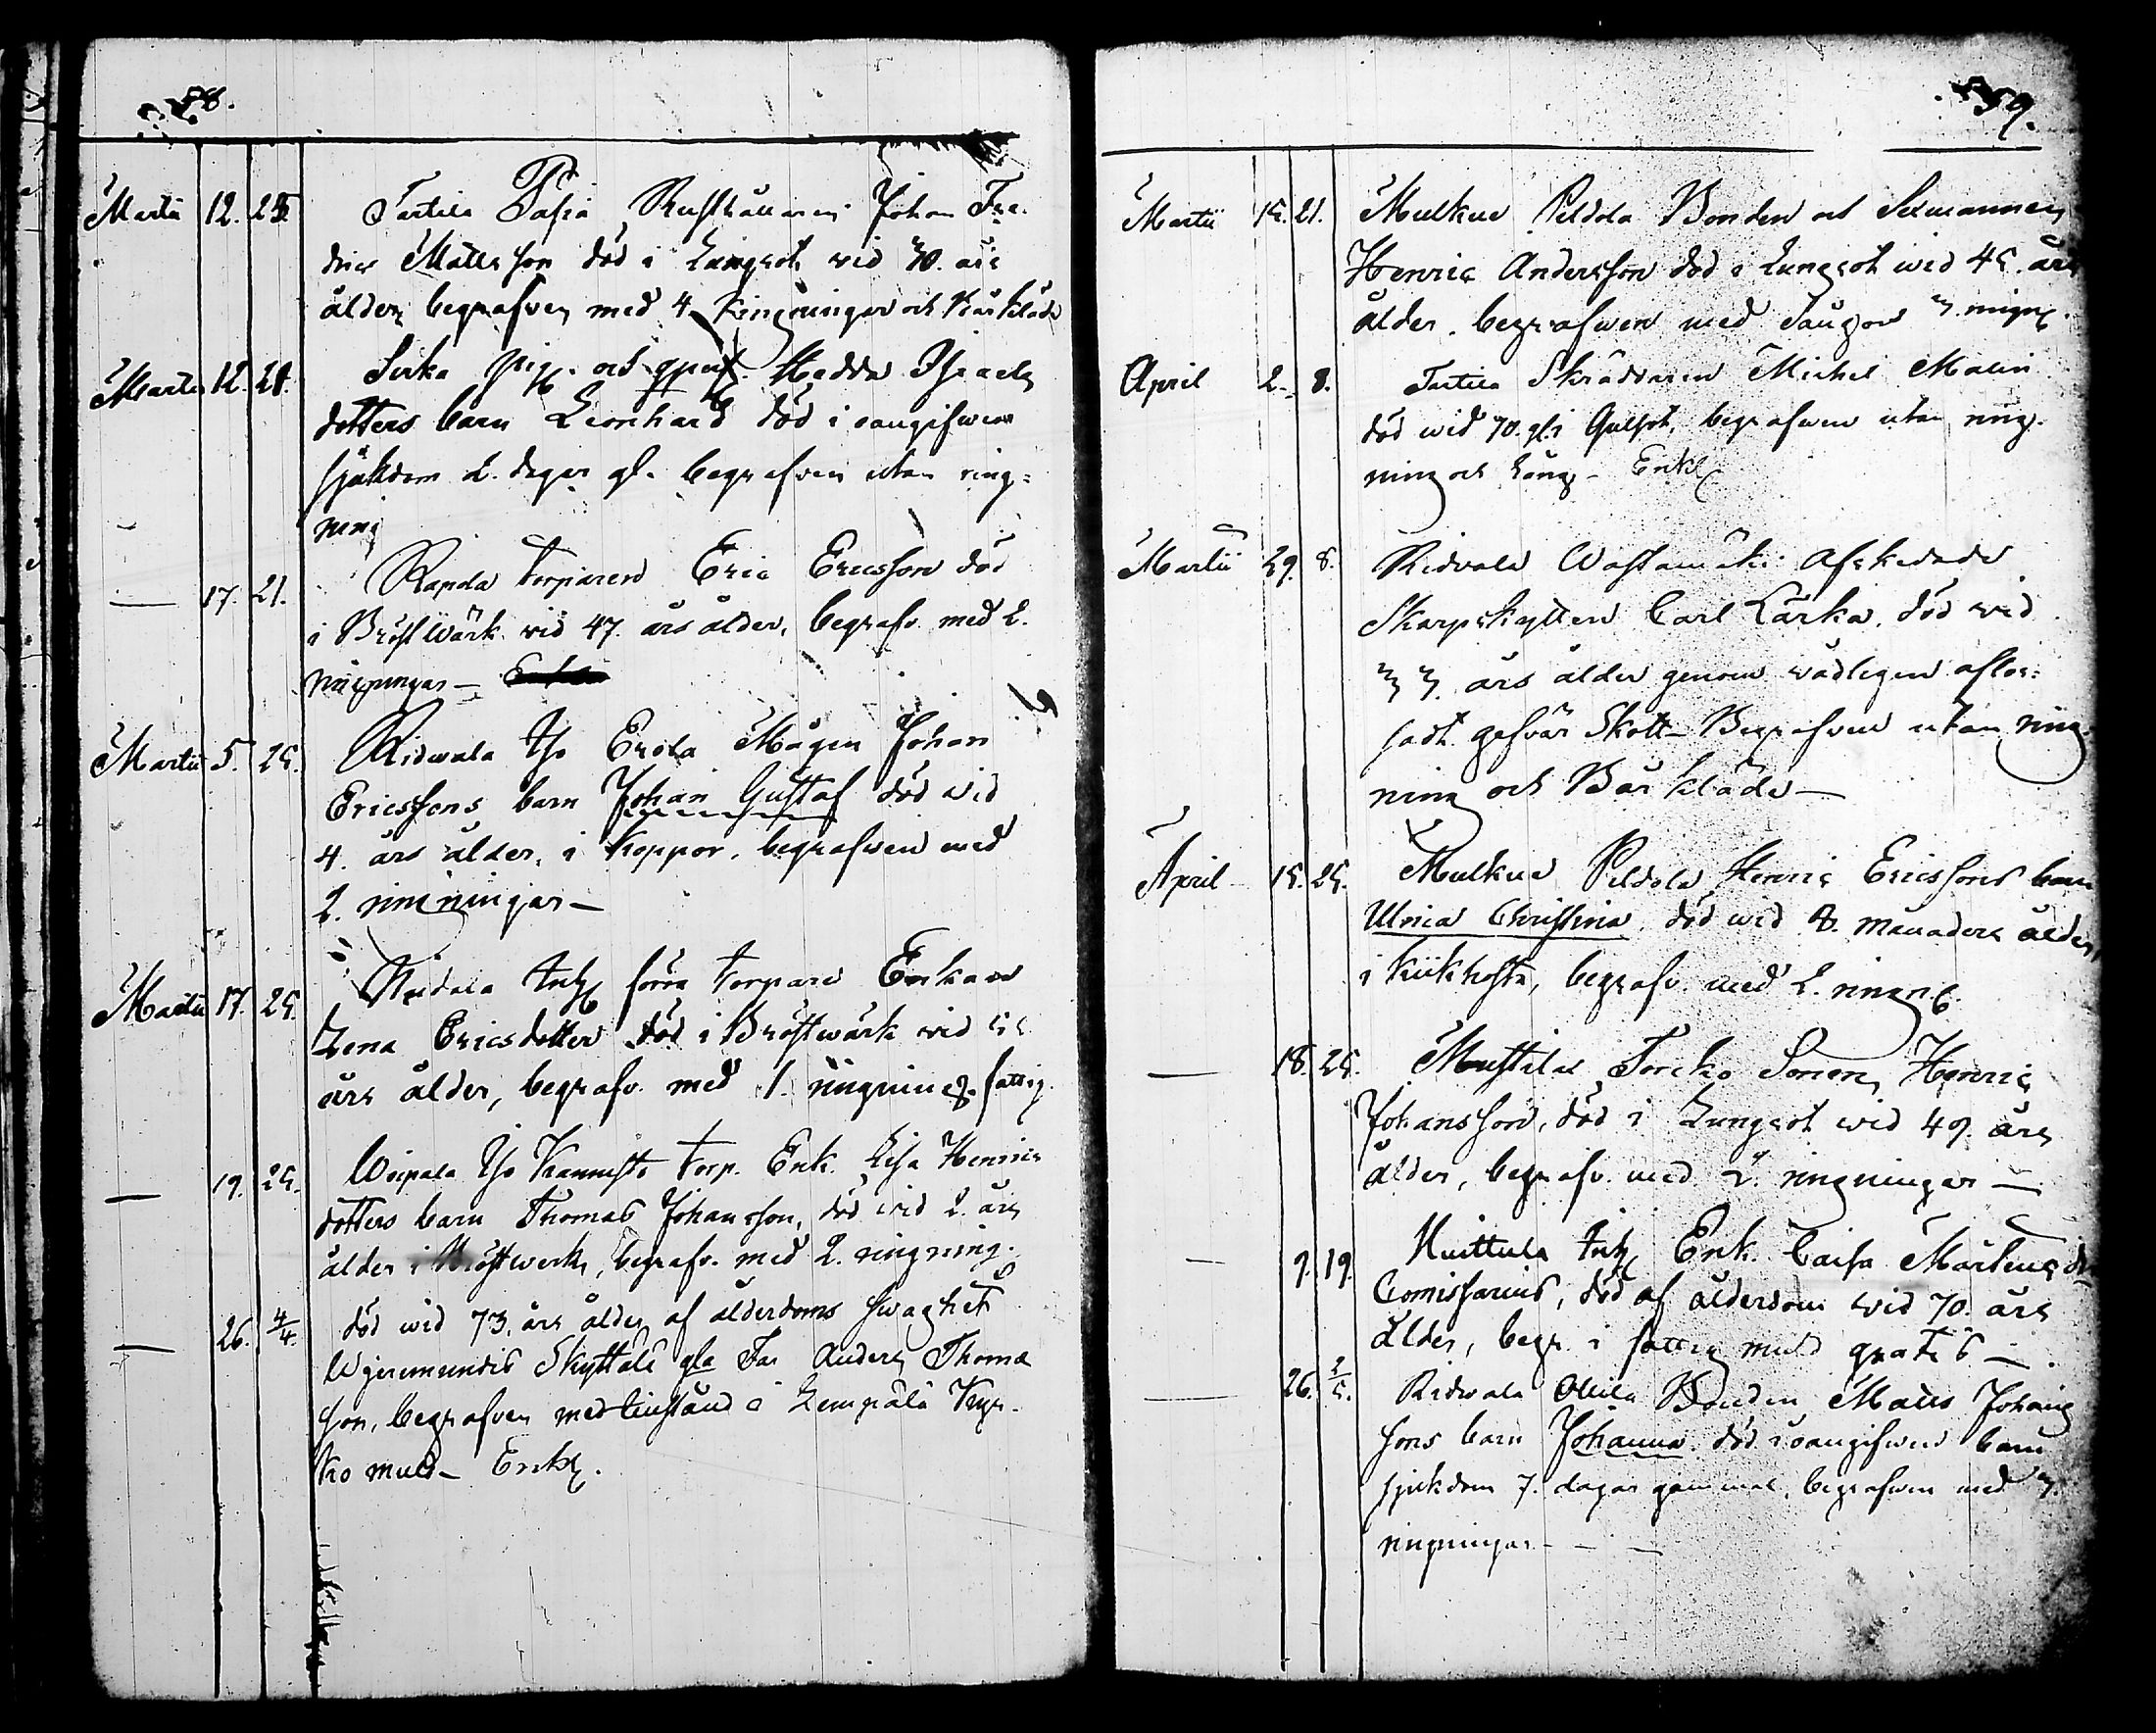 58.
Martii 12. 25. Tartila Pafia Rusthållaren Johan Fre-
dric Mattsson död i Lungsot wid 30. års
ålder begrafven med 4. Ringningar och Bårkläde
Martii 12. 21. Pig. och Hedda Israels
dotters barn Leonhard död i oangifwen
sjukdom 2. dagar gl. begrafven utan ring-
ning
— 17. 21. Rapola torparen Eric Ericsson död
i Bröstwärk wid 47. års ålder, begrafv. med 2.
ringningar —
Martii 5. 25. Ridwala Erola Mågen Johan
Ericssons barn Johan Gustaf död wid
4. års ålder, i koppor, begrafwen med
2. ringningar —
Martii 17. 25. förra torpare Enkan
Lena Ericsdotter död i Bröstwärk wid 55
års ålder, begrafv. med 1. ringning. fattig.
— 19. 25. Woipala Kannisto torp. Enk. Lisa Henrics
dotters barn Thomas Johansson, död wid 2. års
ålder i Bröstwerk, begrafv. med 2. ringning.
— 26. 4/4 död wid 73. års ålder af ålderdoms swaghet
Skyttälä gla Far Anders Thomas
son, begrafven med i Lempälä Kyr-
ko mull — Enkl.
59.
Martii 15. 21. Mulkue Peldola Bonden och
Henric Andersson död i Lungsot wid 45. års
ålder, begrafwen med Saugor 3. ringn.
April 2. 8. Tartila Skräddaren Michel Malin
död wid 70. gl. i Gulsot, begrafwen utan ring-
ning och sång — Enkl.
Martii 29. 8. Ridvala Wastamäki Afskedade
Skarpskytten Carl Lärka, död wid
33. års ålder genom wådligen aflos-
sadt gefvär Skott — Begrafwen utan ring-
ning och Bårkläde —
April 15. 25. Mulkue Peldola Henric Ericssons barn
Ulrica Christina, död wid 8. månaders ålder,
i Kikhosta, begrafv. med 2. ringn.
— 18. 25. Mustila Torcko Sonen Henric
Johansson, död i Lungsot wid 49. års
ålder, begrafv. med 2. ringningar —
— 9. 19. Huittula Enk. Caisa Mårtensd
Comissarius, död af ålderdom wid 70. års
ålder, begr. i fattig mull gratis —
— 26. 2/5. Ridwala Ollila Bonden Matts Johans
sons barn Johanna, död i oangifwen barn
sjukdom 7. dagar gammal, begrafwen med 3
ringningar — — —